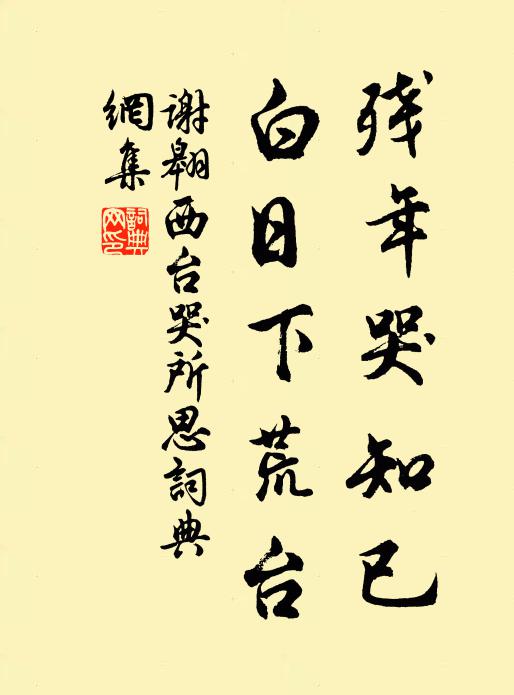 残年哭知已
白日下荒台
谢翱西台哭所思詞典
網集
詞典
网印